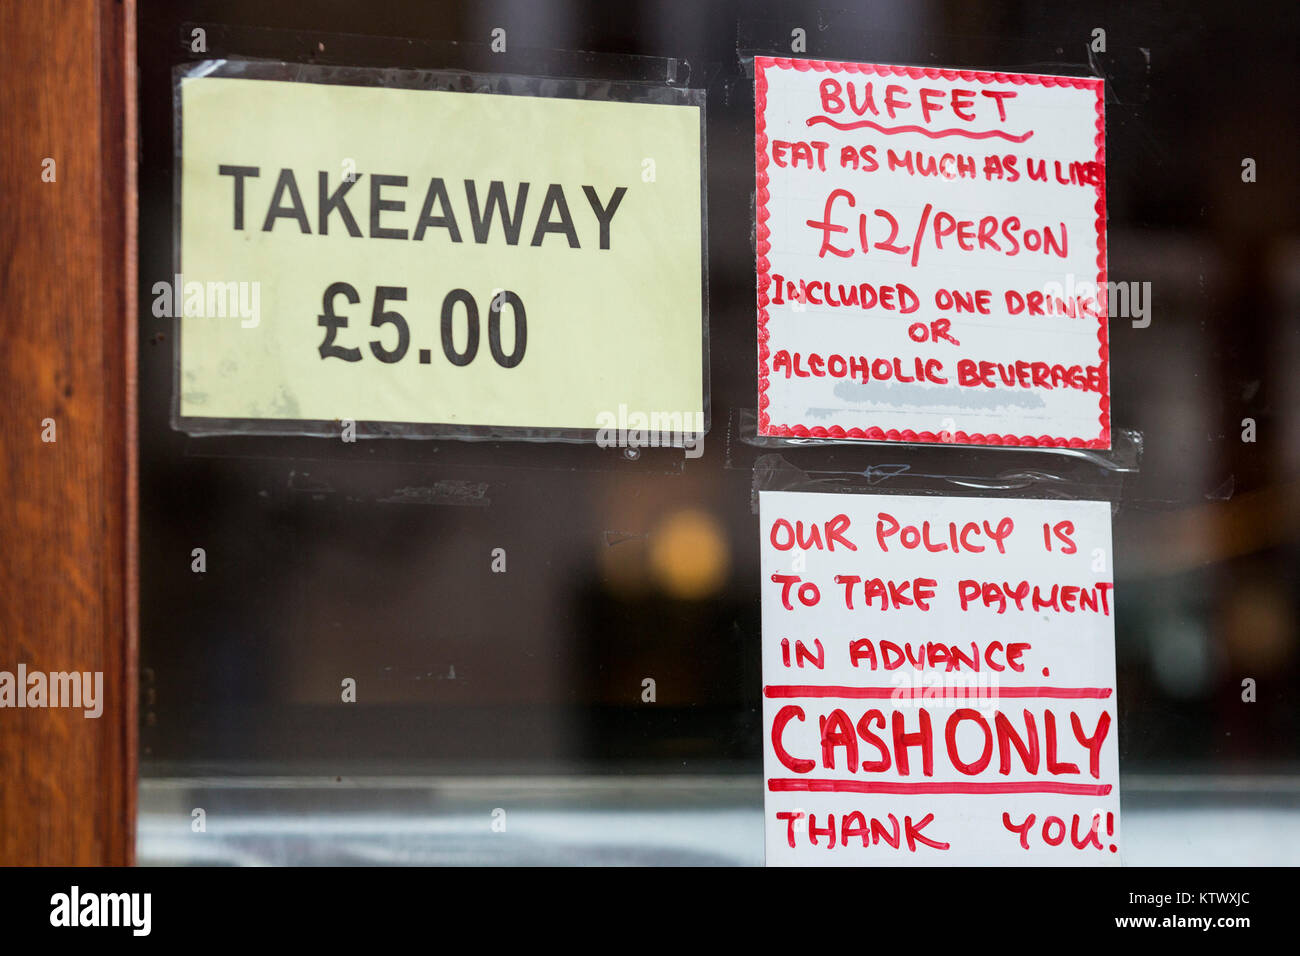 TAKEAWAY
£5.00
BUFFET
EAT AS MUCH AS U LIKE
£12/PERSON
INCLUDED ONE DRINK
OR
ALCOHOLIC BEVERAGE
OUR POLICY IS
TO TAKE PAYMENT
IN ADVANCE.
CASH ONLY
THANK YOU!
a
alamy
alamy stock photo
KTWXJC
www.alamy.com